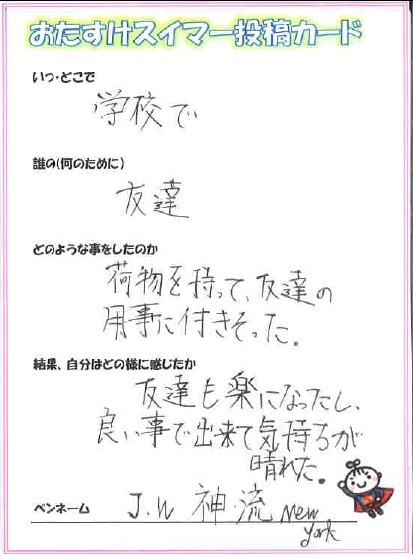 おたすけスイマー投稿カード
いつ・どこで
学校で
誰の(何のために)
友達
どのような事をしたのか
荷物を持って、友達の
用事に付きそった。
結果、自分はどの様に感じたか
友達も楽になったし、
良い事で出来て気持ちが
晴れた。
ペンネーム J.W 神・流 New
York